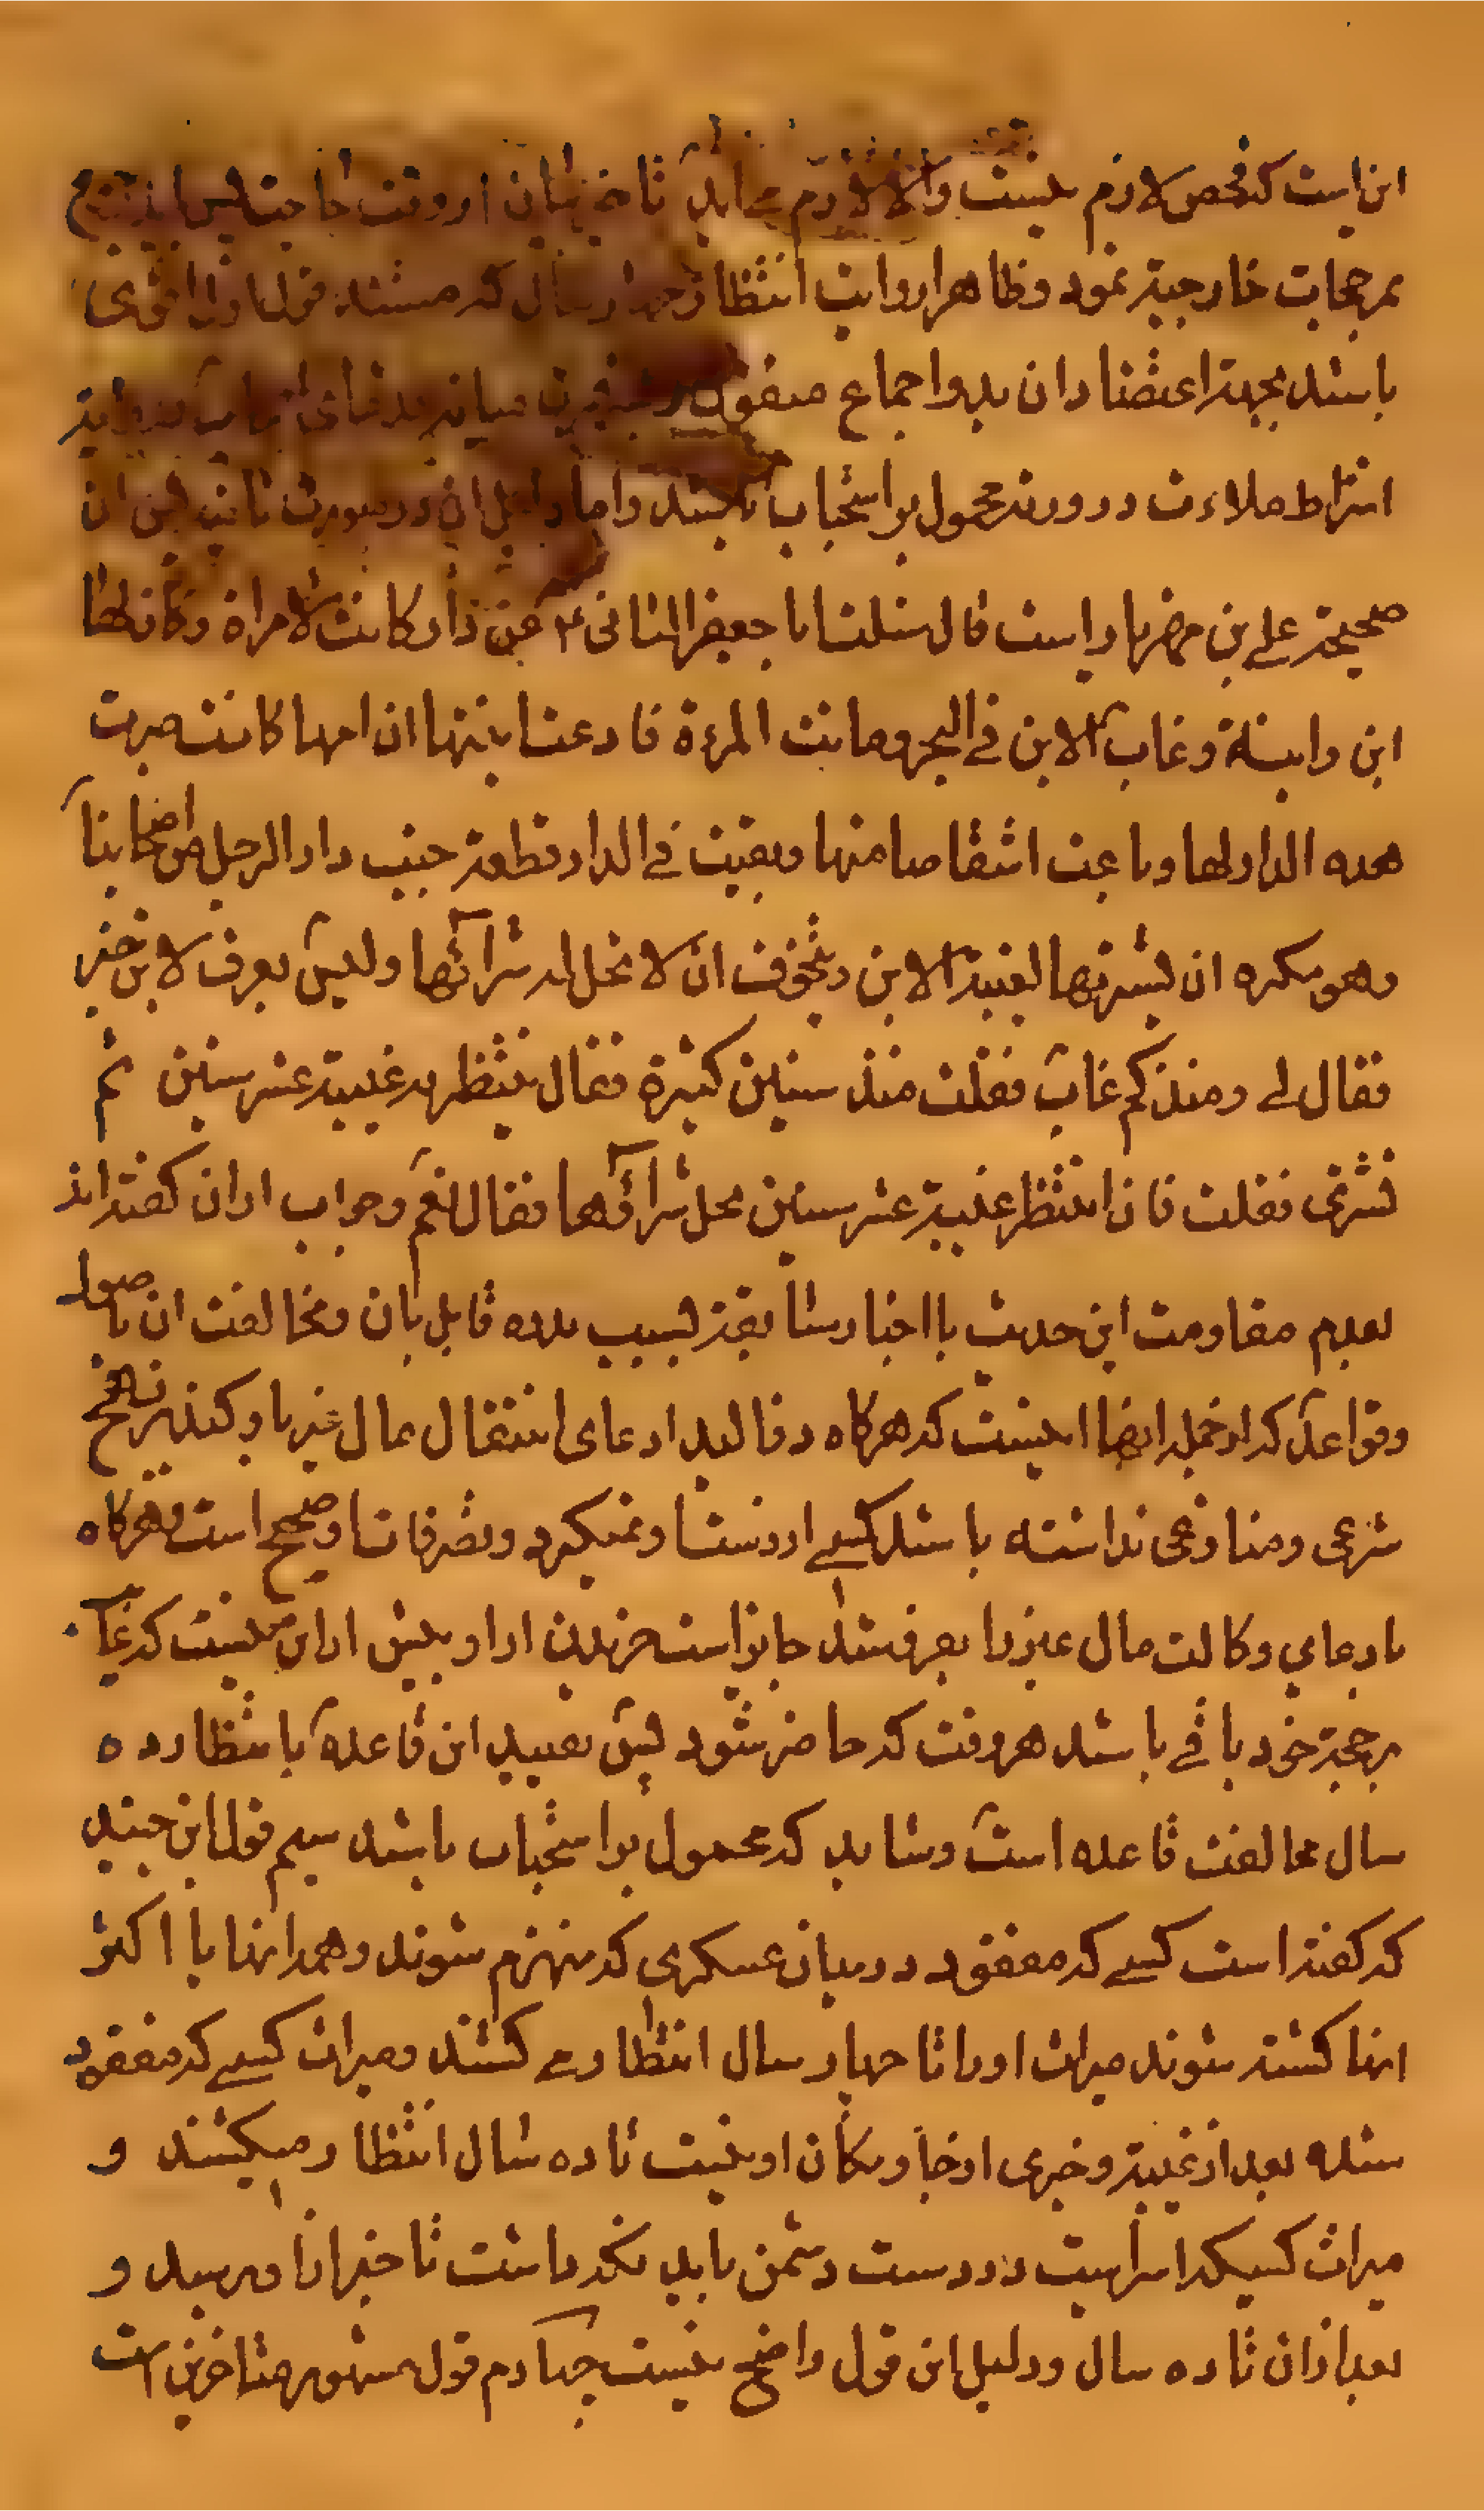 این است که فحص لازم نیست والا لازم می آید تاخیر بیان از وقت حاجت پس باید رجوع
بمرجحات خارجیة نمود وظاهرا روایت انتظار چهار سال که مستند قول اول اقوی
باشد بجهة اعتضاد ان بدو اجماع منقول
اشتراط ملاءت در ورثه محمول بر استحباب باشد واما دلیل ان در صورت ثانیه پس ان
صحیحة علی بن مهزیار است قال سئلت ابا جعفر الثانی ع عن دار کانت لامراة وکان لها
ابن وابنة وغاب الابن فی البحر وماتت المرءة فادعت ابنتها ان امها کانت صیرت
هذه الدار لها وباعت اشقاصا منها وبقیت فی الدار قطعة جنب دار الرجل من اصحابنا
وهو یکره ان یشتریها لغیبة الابن ویتخوف ان لا یحل له شرائها ولیس یعرف لابن خبر
فقال لی ومنذ کم غاب فقلت منذ سنین کثیرة فقال ینتظر به غیبة عشر سنین ثم
تشتری فقلت فاذا انتظر غیبة عشر سنین یحل شرائها فقال نعم وجواب از ان گفته اند
بعدم مقاومت این حدیث با اخبار سابقة بسبب عدم قابل بان ومخالفت ان با صول
وقواعد که از جمله انها اینست که هرگاه دفالید ادعای انتقال مال غیر باو کند بر نهج
شرعی ومنازعی نداشته باشد کسی از دستاو نمیگیرد وتصرفاتاو صحیح است وهرگاه
بادعای وکالت مال غیر را بفرفشد جایز است خریدن از او بیش از این نیست که غایب
برحجة خود باقی باشد هر وقت که حاضر شود پس تقیید این قاعده بانتظار ده
سال مخالفت قاعده است وشاید که محمول بر استحباب باشد سیم قول ابن جنید
که گفته است کسی که مفقود در میان عسکری که منهزم شوند وهمه انها یا اکثر
انها کشته شوند میراث او را تا چهار سال انتظار می کشند ومیراث کسی که مفقود
شده بعد از غیبة وخبری از جا ومکان او نیست تا ده سال انتظار میکشند و
میراث کسیکه اسراست در دست دشمن باید نگه داشت تا خبر از او میرسد و
بعد از ان تا ده سال ودلیل این قول واضح نیست چهارم قول مشهور متاخرین است